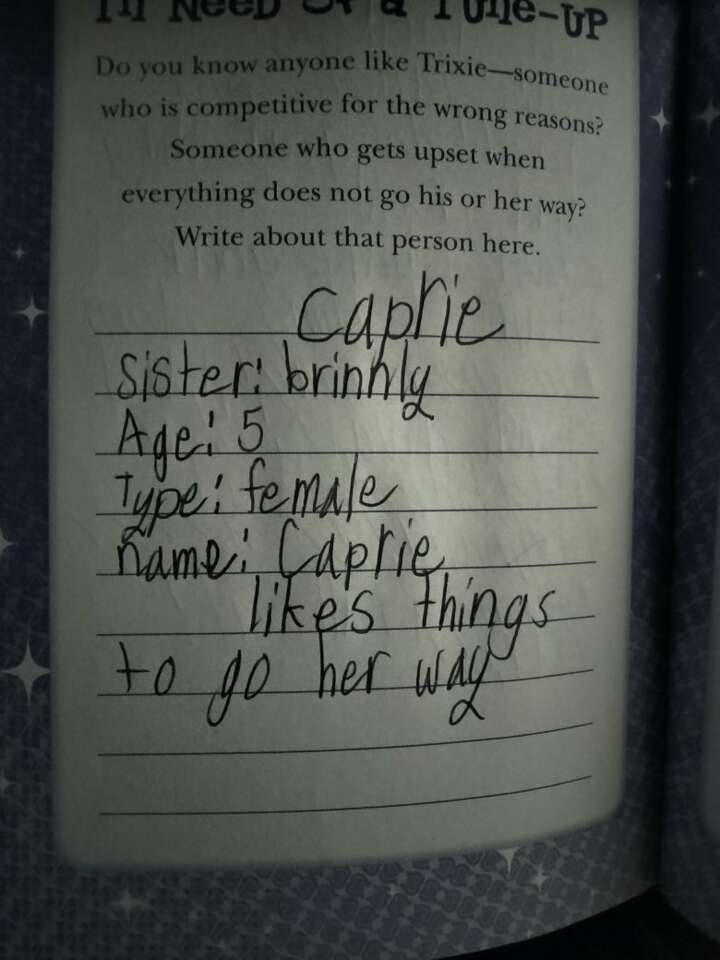 In Need Of a Tune-UP
Do you know anyone like Trixie—someone
who is competitive for the wrong reasons?
Someone who gets upset when
everything does not go his or her way?
Write about that person here.
Caprie
Sister: brinhly
Age: 5
Type: female
name: Caprie
likes things
to go her way